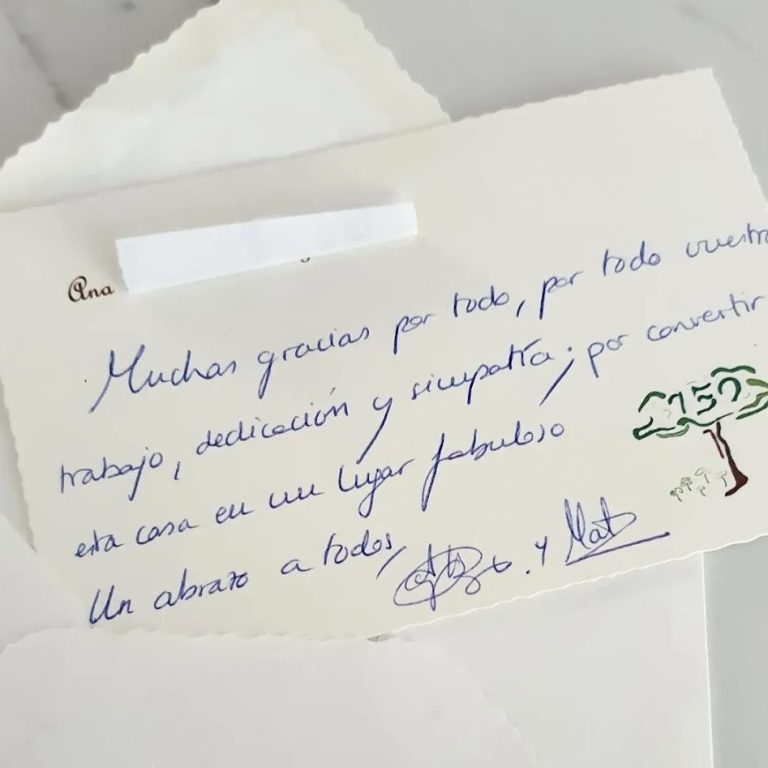 Ana
Muchas gracias por todo, por todo vuestro
trabajo, dedicación y simpatía; por convertir
esta casa en un lugar fabuloso
Un abrazo a todos,
y Mat